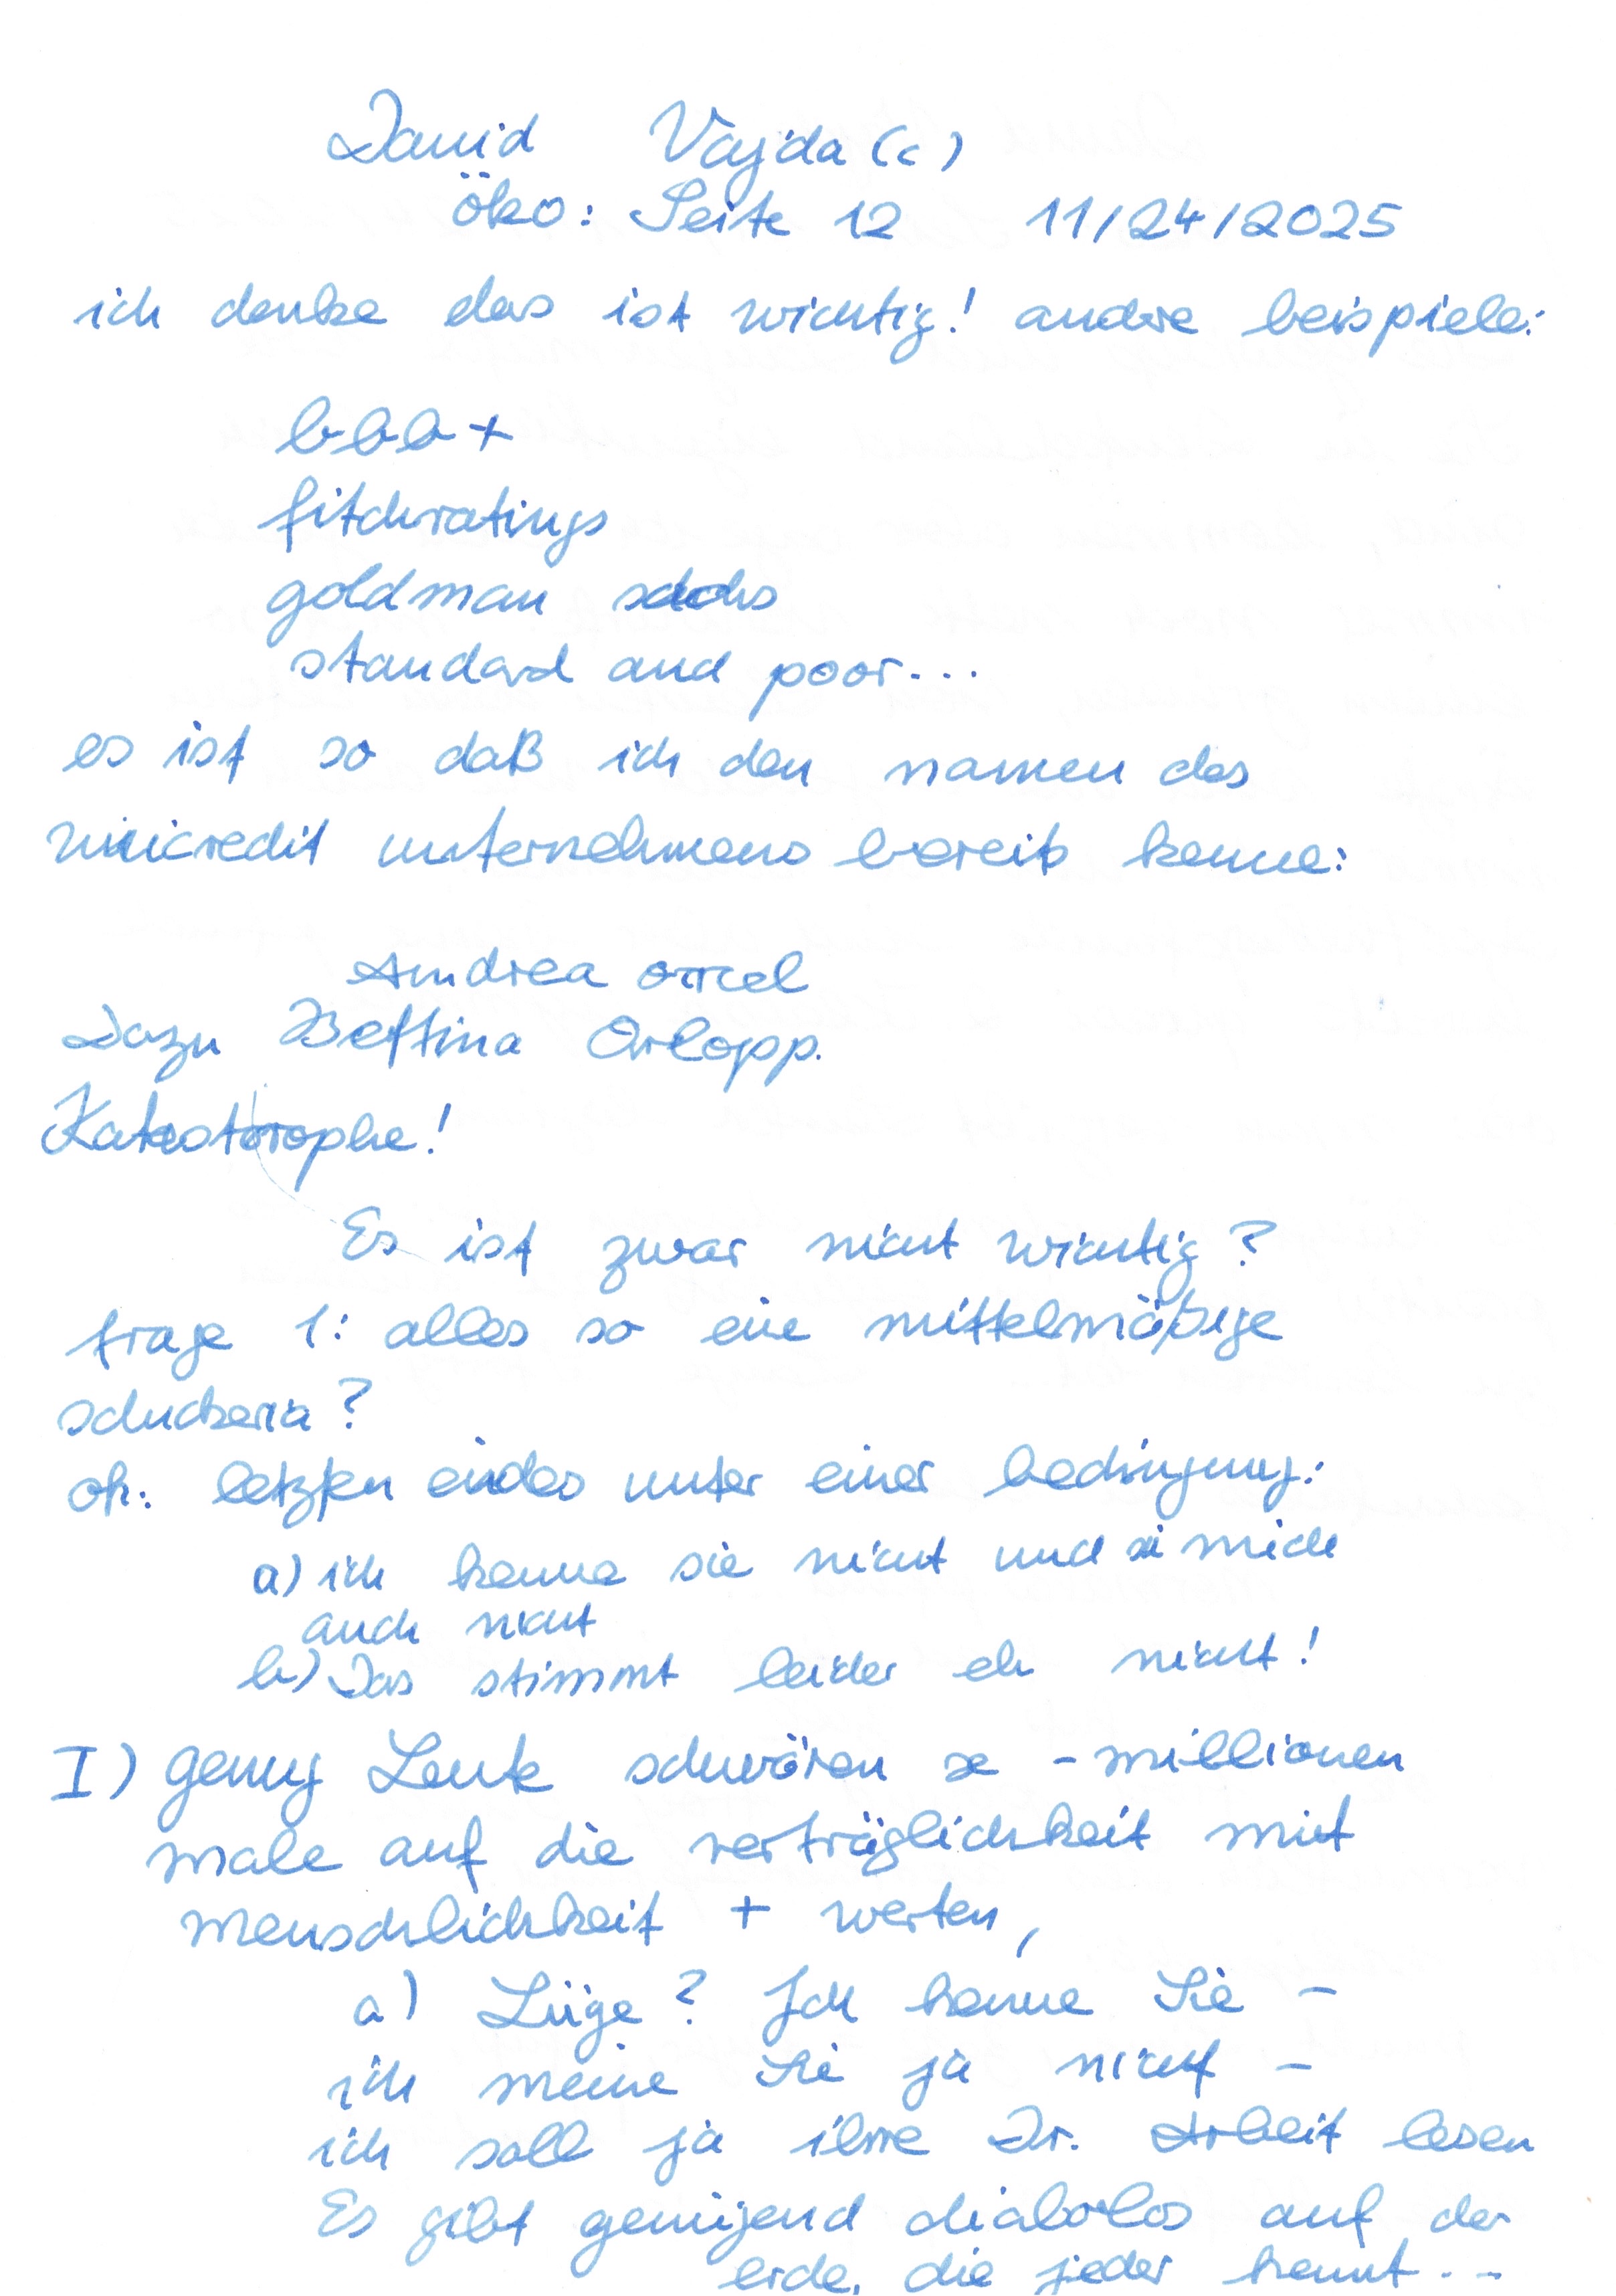 David Vajda (c)
öko: Seite 12 11/24/2025
ich denke das ist wichtig! andre beispiele:
bbb+
fitchratings
goldman sachs
standard and poor...
es ist so daß ich den namen des
unicredit unternehmens bereits kenne:
Andrea orcel
Dazu Bettina Orlopp.
Katastrophe!
Es ist zwar nicht wichtig?
frage 1: alles so eine mittelmäßige
schickeria?
ok: letzten endes unter einer bedingung:
a) ich kenne sie nicht und sie mich
auch nicht
b) Das stimmt leider eh nicht!
I) genug Leute schwören x - millionen
male auf die verträglichkeit mit
menschlichkeit + werten,
a) Lüge? Ich kenne Sie -
ich meine Sie ja nicht -
ich soll ja ihre Dr. Arbeit lesen
Es gibt genügend diabolos auf der
erde, die jeder kennt...